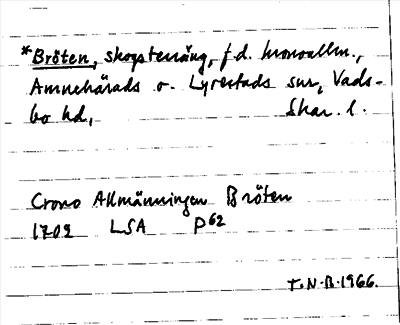 *Bröten, skogsterräng, f.d. kronoallm.,
Amnehärads o. Lyrestads snr, Vads-
bo hd, Skar. l.
Crono Allmänningen Bröten
1702 LSA P62
T.N.B. 1966.